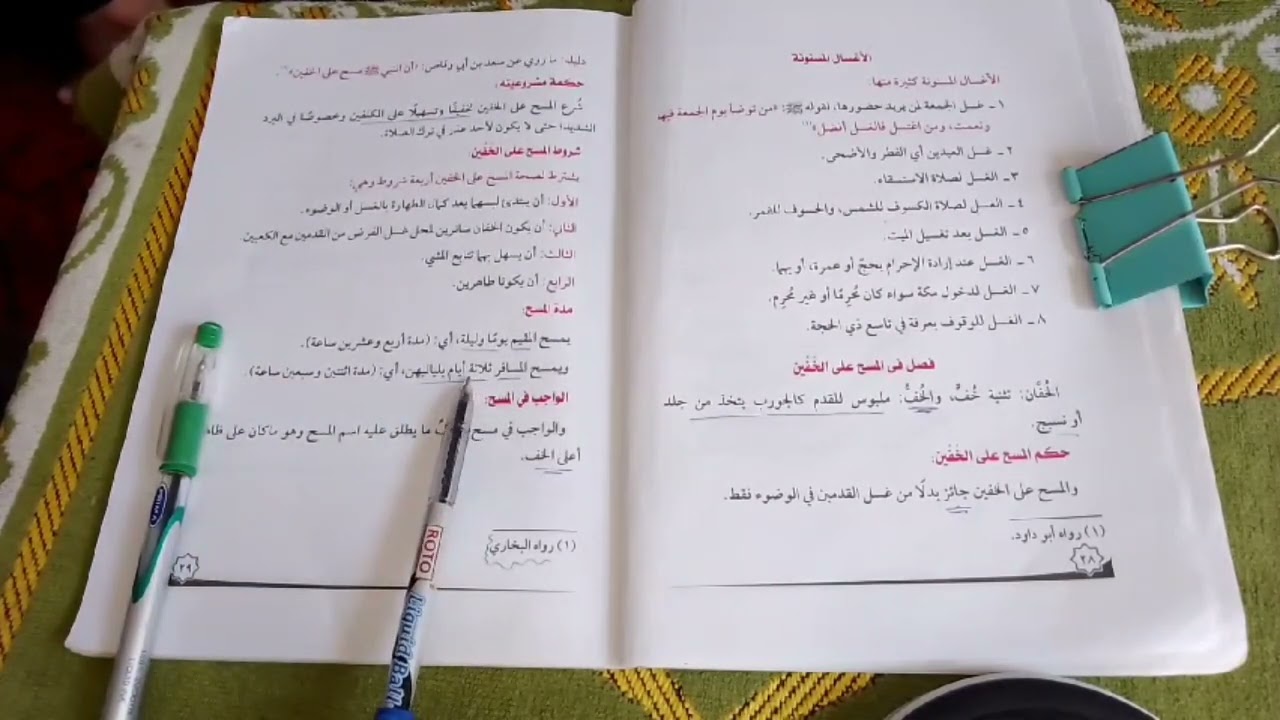 الأغسال المسنونة
الأغسال المسنونة كثيرة منها:
١ـ غسل الجمعة لمن يريد حضورها، لقوله ﷺ: «من توضأ يوم الجمعة فبها
ونعمت، ومن اغتسل فالغسل أفضل»(١)
٢ـ غسل العيدين أي الفطر والأضحى.
٣ـ الغسل لصلاة الاستسقاء.
٤ـ الغسل لصلاة الكسوف للشمس، والخسوف للقمر.
٥ـ الغسل بعد تغسيل الميت.
٦ـ الغسل عند إرادة الإحرام بحجّ أو عمرة، أو بهما.
٧ـ الغسل لدخول مكة سواء كان مُحرِمًا أو غير مُحرِم.
٨ـ الغسل للوقوف بعرفة في تاسع ذي الحجة.
فصل في المسح على الخُفَّيْن
الخُفَّان: تثنية خُفٍّ، والخُفُّ: ملبوس للقدم كالجورب يتخذ من جلد
أو نسيج.
حكم المسح على الخُفَّيْن:
والمسح على الخفين جائز بدلًا من غسل القدمين في الوضوء فقط.
(١) رواه أبو داود.
٢٨
دليله: ما روي عن سعد بن أبي وقاص: «أن النبي ﷺ مسح على الخفين»(١).
حكمة مشروعيته:
شُرع المسح على الخفين تخفيفًا وتسهيلًا على المكلفين وخصوصًا في البرد
الشديد؛ حتى لا يكون لأحد عذر في ترك الصلاة.
شروط المسح على الخُفَّيْن:
يشترط لصحة المسح على الخفين أربعة شروط وهي:
الأول: أن يبتدئ لبسهما بعد كمال الطهارة بالغسل أو الوضوء.
الثاني: أن يكون الخفان ساترين لمحل غسل الفرض من القدمين مع الكعبين
الثالث: أن يسهل بهما تتابع المشي.
الرابع: أن يكونا طاهرين.
مدة المسح:
يمسح المقيم يومًا وليلة، أي: (مدة أربع وعشرين ساعة).
ويمسح المسافر ثلاثة أيام بلياليهن، أي: (مدة اثنتين وسبعين ساعة).
الواجب في المسح:
والواجب في مسح ما يطلق عليه اسم المسح وهو ما كان على
أعلى الخف.
(١) رواه البخاري
٢٩
ROTO
Liquid Ball